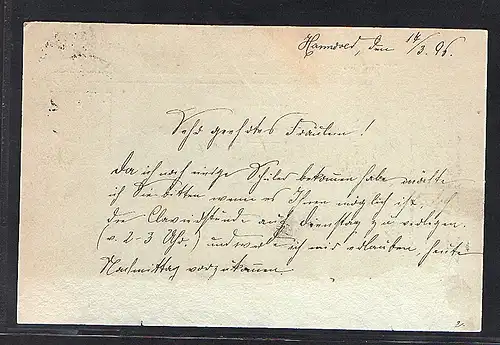 Hannover, den 14/3. 96.
Sehr geehrtes Fräulein!
Da ich noch einige Schüler bekommen habe, möchte
ich Sie bitten wenn es Ihnen möglich ist,
die Clavierstunde auf Dienstag zu verlegen.
(v. 2-3 Uhr.) und werde ich mir erlauben, heute
Nachmittag vorzukommen.